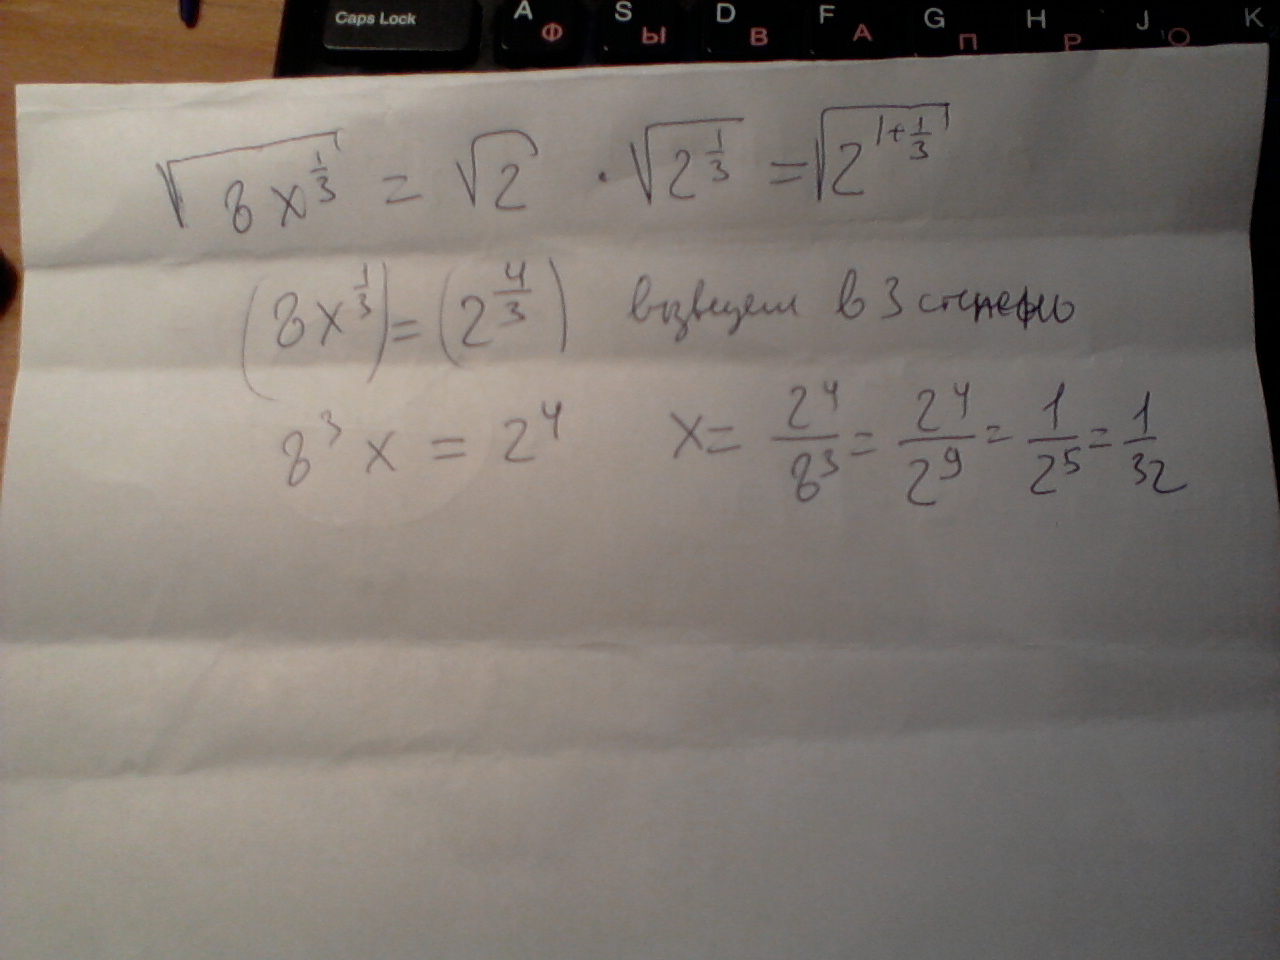 Caps Lock A Ф S Ы D В F А G П H Р J О K
√(8x^(1/3)) = √2 · √(2^(1/3)) = √(2^(1+1/3))
(8x^(1/3)) = (2^(4/3)) возведем в 3 степень
8³ x = 2⁴ x = 2⁴/8³ = 2⁴/2⁹ = 1/2⁵ = 1/32